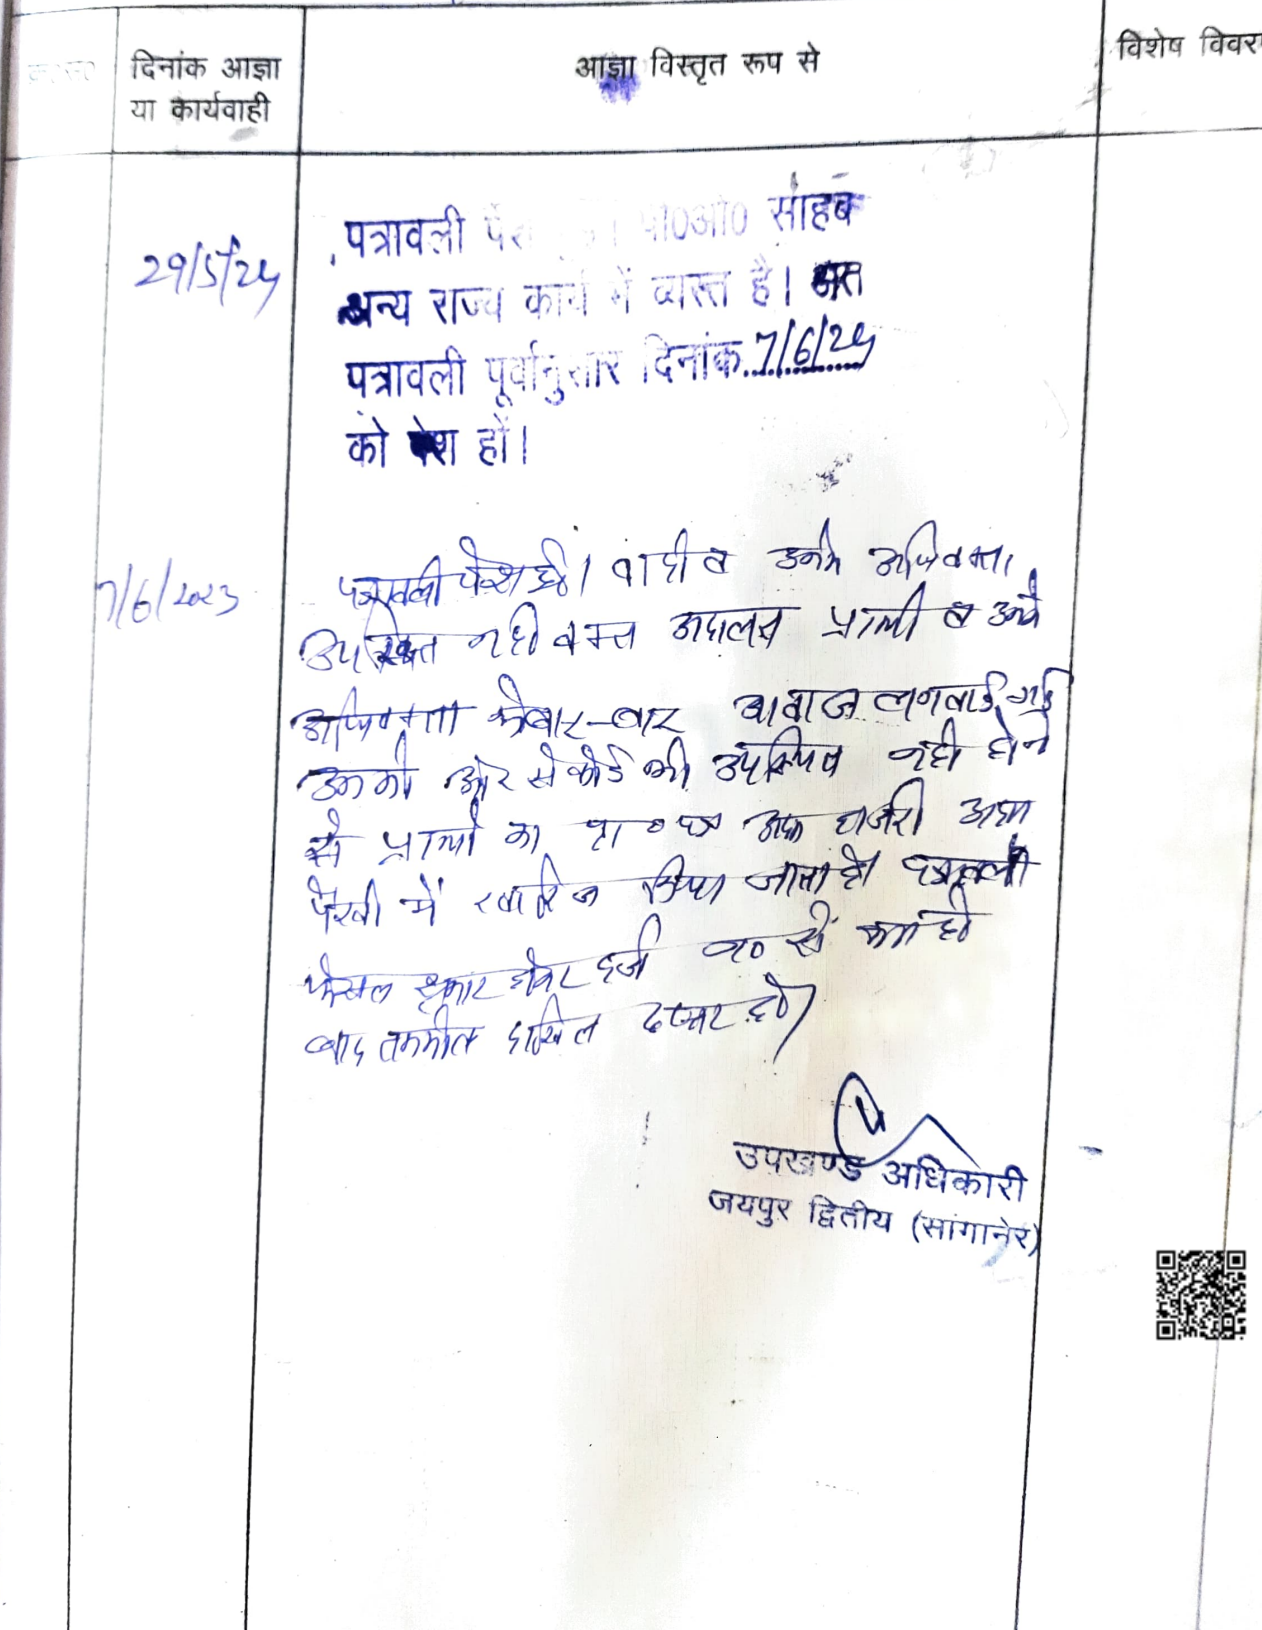 क्र०सं० दिनांक आज्ञा या कार्यवाही आज्ञा विस्तृत रूप से विशेष विवर
29/5/24
पत्रावली पेश हुई। पी0ओ0 साहब
अन्य राज्य कार्य में व्यस्त है। अतः
पत्रावली पूर्वानुसार दिनांक 7/6/24
को पेश हों।
7/6/2023
पत्रावली पेश हुई। वादी व उनके अभिवक्ता
उपस्थित नही वक्त अदालत प्रार्थी व उनके
अभिवक्ता को बार-बार आवाज लगवाई गई
उनकी ओर से कोई भी उपस्थित नही होने
से प्रार्थी का प्रा० पत्र अदम हाजरी अदम
पैरवी में खारिज किया जाता है। पत्रावली
फैसल शुमार होकर दर्ज न० से कम हो
बाद तकमील दाखिल दफ्तर हो।
उपखण्ड अधिकारी
जयपुर द्वितीय (सांगानेर)